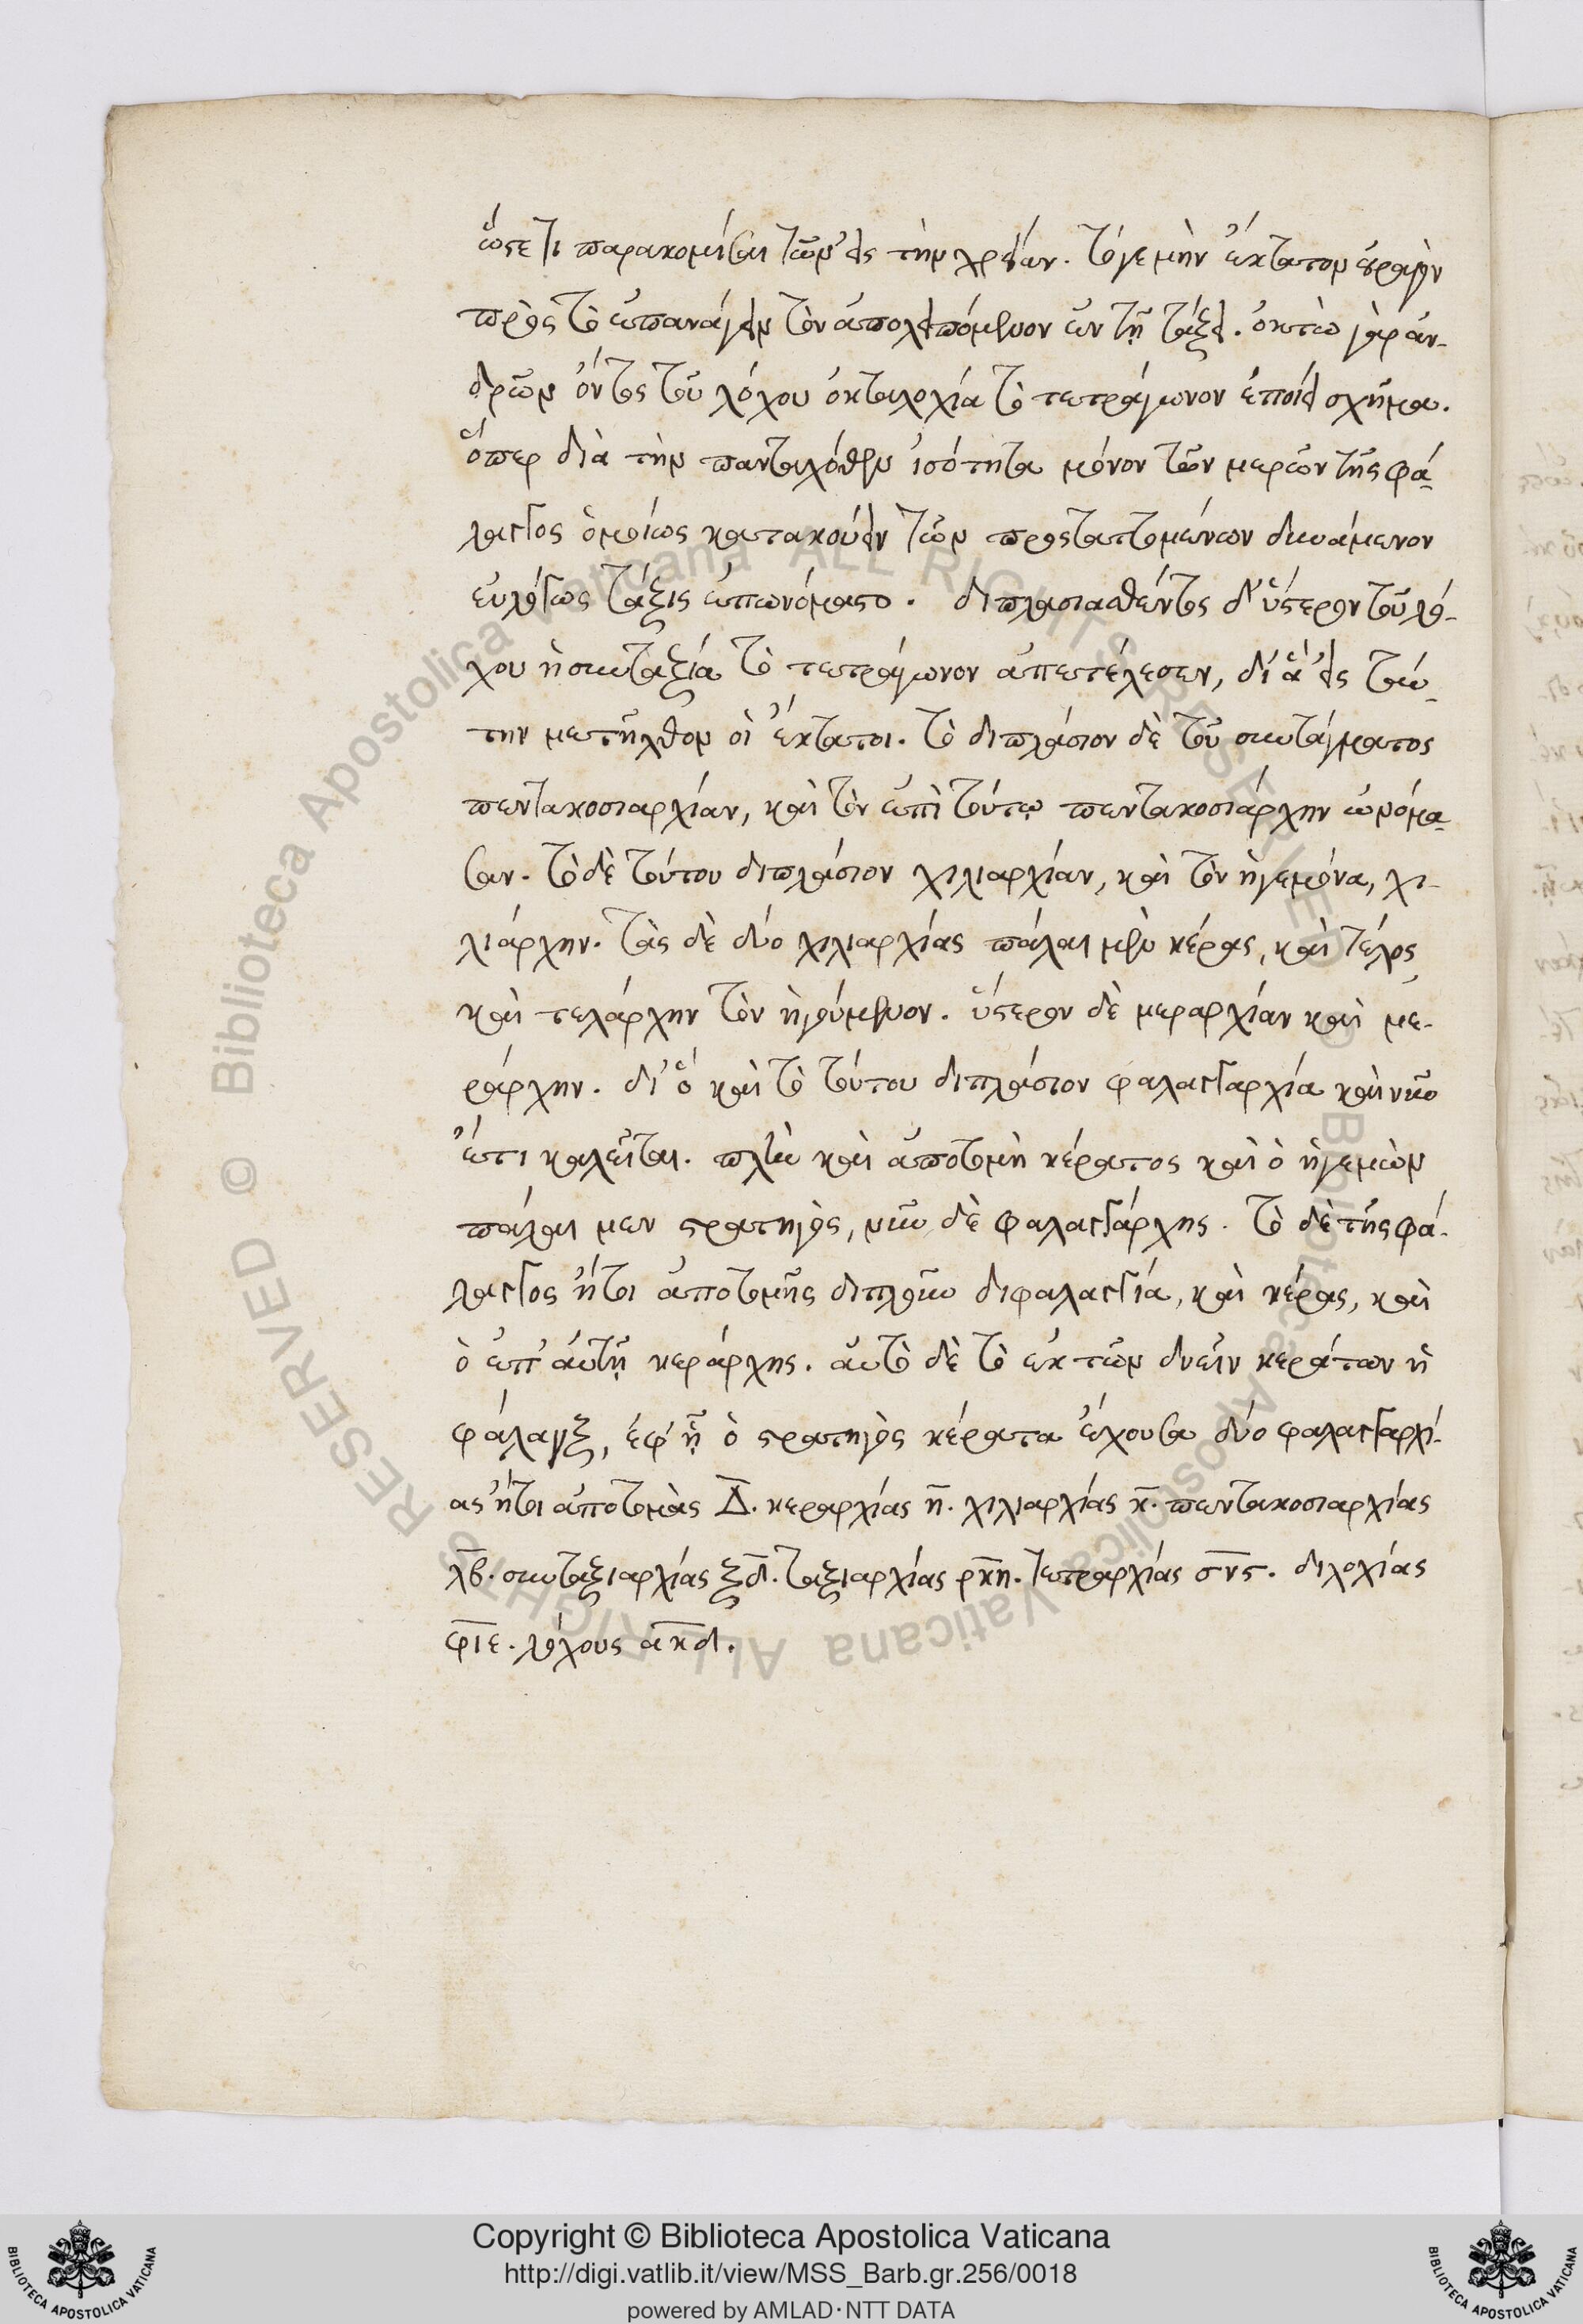 ὥστε τι παρακομίσαι τῶν εἰς τὴν χρείαν. τόγε μὴν ἔκτακτον οὐραγὸν
πρὸς τὸ ἐπανάγειν τὸν ἀπολειπόμενον ἐν τῇ τάξει. ὀκτὼ γὰρ ἀν-
δρῶν ὄντος τοῦ λόχου ὀκταλοχία τὸ τετράγωνον ἐποίει σχῆμα.
ὅπερ διὰ τὴν πανταχόθεν ἰσότητα μόνον τῶν μερῶν τῆς φά-
λαγγος ὁμοίως κατακούειν τῶν προσταττομένων δυνάμενον
εὐλόγως τάξις ἐπωνόμαστο. διπλασιασθέντος δ' ὕστερον τοῦ λό-
χου ἡ συνταξία τὸ τετράγωνον ἀπετέλεσεν, δι' ἃ εἰς ταύ-
την μετῆλθον οἱ ἔκτατοι. τὸ διπλάσιον δὲ τοῦ συντάγματος
πεντακοσιαρχίαν, καὶ τὸν ἐπὶ τούτῳ πεντακοσιάρχην ὠνόμα-
σαν. τὸ δὲ τούτου διπλάσιον χιλιαρχίαν, καὶ τὸν ἡγεμόνα, χι-
λιάρχην. τὰς δὲ δύο χιλιαρχίας πάλαι μὲν κέρας, καὶ τέλος
καὶ τελάρχην τὸν ἡγούμενον. ὕστερον δὲ μεραρχίαν καὶ με-
ράρχην. δι' ὃ καὶ τὸ τούτου διπλάσιον φαλαγγαρχία καὶ νῦν
ἔτι καλεῖται. πλὴν καὶ ἀποτομὴ κέρατος καὶ ὁ ἡγεμὼν
πάλαι μεν στρατηγὸς, νῦν δὲ φαλαγγάρχης. τὸ δὲ τῆς φά-
λαγγος ἤτοι ἀποτομῆς διπλοῦν διφαλαγγία, καὶ κέρας, καὶ
ὁ ἐπ' αὐτῇ κεράρχης. αὐτὸ δὲ τὸ ἐκ τῶν δυεῖν κεράτων ἡ
φάλαγξ, ἐφ' ᾗ ὁ στρατηγὸς κέρατα ἔχουσα δύο φαλαγγαρχί-
ας ἤτοι ἀποτομὰς Δ. κεραρχίας η. χιλιαρχίας κ. πεντακοσιαρχίας
λβ. συνταξιαρχίας ξδ. ταξιαρχίας ρκη. τετραρχίας σνς. διλοχίας
φιε. λόχους ακδ.
Copyright © Biblioteca Apostolica Vaticana
http://digi.vatlib.it/view/MSS_Barb.gr.256/0018
powered by AMLAD·NTT DATA